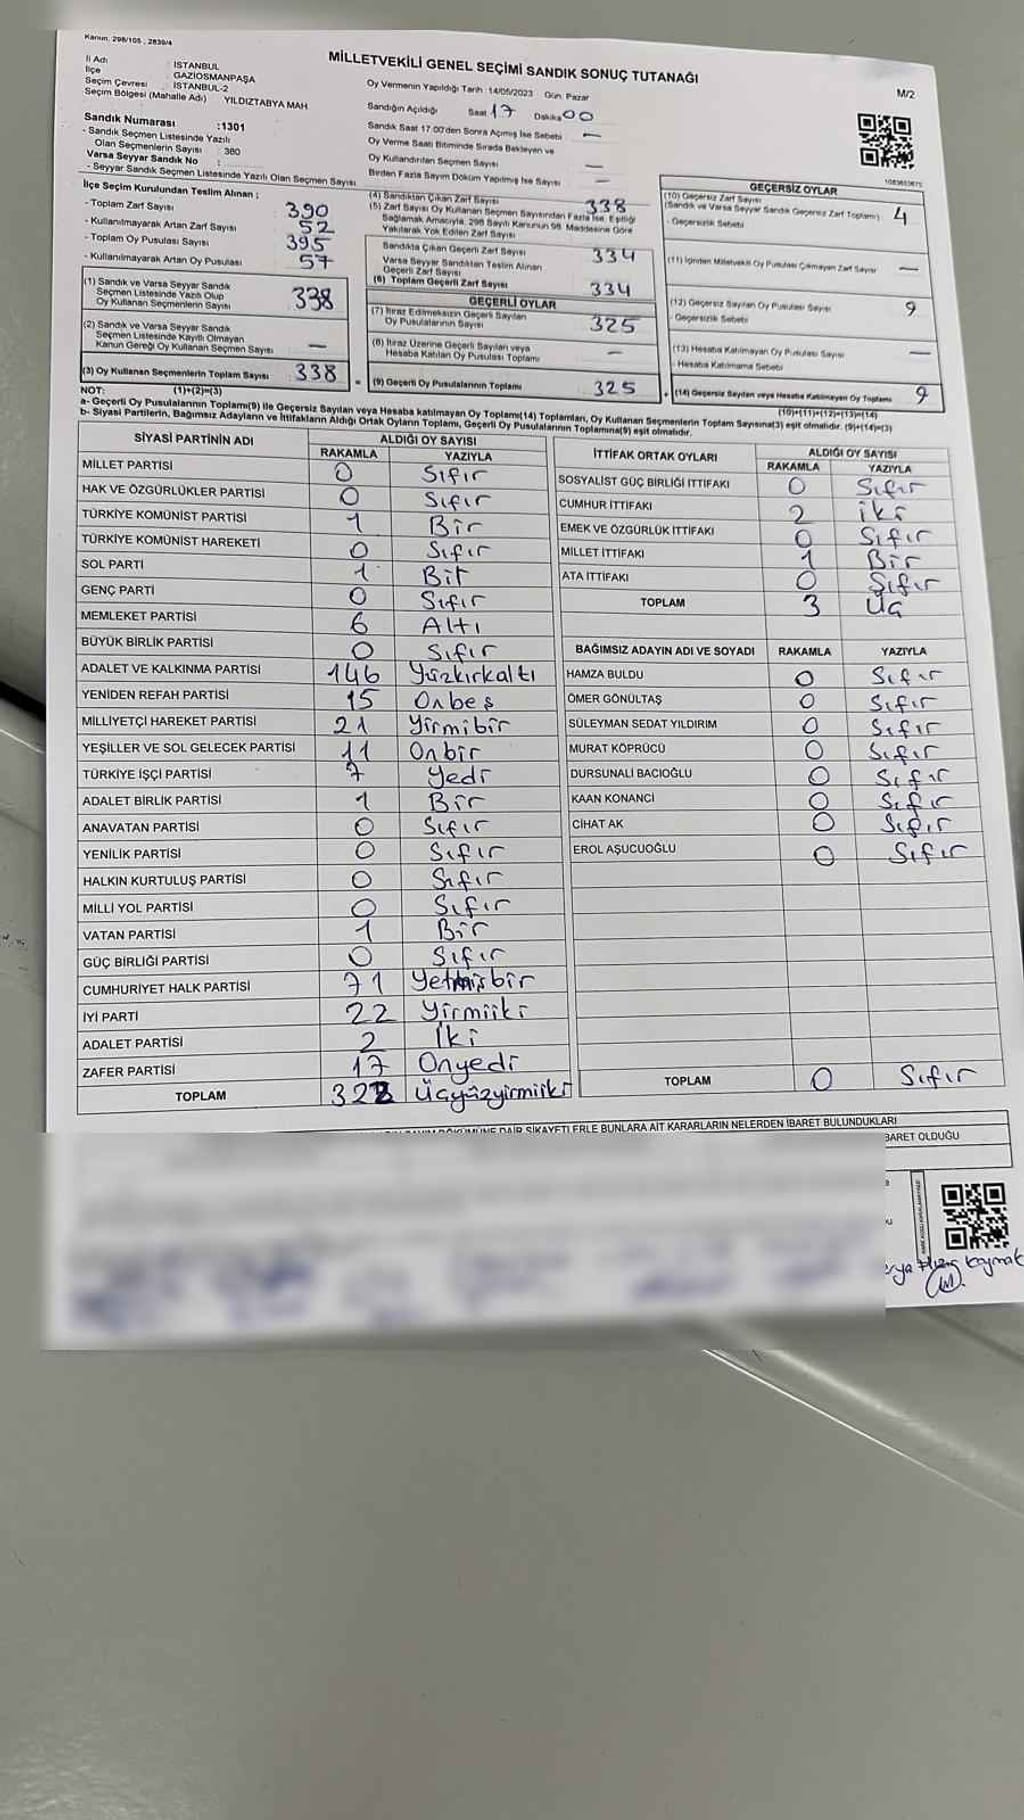 Kanun: 298/105 ; 2839/4
MİLLETVEKİLİ GENEL SEÇİMİ SANDIK SONUÇ TUTANAĞI
M/2
İl Adı : İSTANBUL
İlçe GAZİOSMANPAŞA
Seçim Çevresi : İSTANBUL-2
Seçim Bölgesi (Mahalle Adı) YILDIZTABYA MAH
Sandık Numarası :1301
- Sandık Seçmen Listesinde Yazılı
Olan Seçmenlerin Sayısı : 380
Varsa Seyyar Sandık No :
- Seyyar Sandık Seçmen Listesinde Yazılı Olan Seçmen Sayısı
Oy Vermenin Yapıldığı Tarih :14/05/2023 Gün: Pazar
Sandığın Açıldığı Saat 17 Dakika 00
Sandık Saat 17:00'den Sonra Açılmış İse Sebebi —
Oy Verme Saati Bitiminde Sırada Bekleyen ve
Oy Kullandırılan Seçmen Sayısı —
Birden Fazla Sayım Döküm Yapılmış İse Sayısı —
İlçe Seçim Kurulundan Teslim Alınan :
- Toplam Zarf Sayısı 390
- Kullanılmayarak Artan Zarf Sayısı 52
- Toplam Oy Pusulası Sayısı 395
- Kullanılmayarak Artan Oy Pusulası 57
(1) Sandık ve Varsa Seyyar Sandık
Seçmen Listesinde Yazılı Olup
Oy Kullanan Seçmenlerin Sayısı 338
(2) Sandık ve Varsa Seyyar Sandık
Seçmen Listesinde Kayıtlı Olmayan
Kanun Gereği Oy Kullanan Seçmen Sayısı —
(3) Oy Kullanan Seçmenlerin Toplam Sayısı 338
(4) Sandıktan Çıkan Zarf Sayısı 338
(5) Zarf Sayısı Oy Kullanan Seçmen Sayısından Fazla İse, Eşitliği
Sağlamak Amacıyla, 298 Sayılı Kanunun 98. Maddesine Göre
Yakılarak Yok Edilen Zarf Sayısı
Sandıkta Çıkan Geçerli Zarf Sayısı 334
Varsa Seyyar Sandıktan Teslim Alınan
Geçerli Zarf Sayısı
(6) Toplam Geçerli Zarf Sayısı 334
GEÇERLİ OYLAR
(7) İtiraz Edilmeksizin Geçerli Sayılan
Oy Pusulalarının Sayısı 325
(8) İtiraz Üzerine Geçerli Sayılan veya
Hesaba Katılan Oy Pusulası Toplamı —
(9) Geçerli Oy Pusulalarının Toplamı 325
GEÇERSİZ OYLAR
(10) Geçersiz Zarf Sayısı
(Sandık ve Varsa Seyyar Sandık Geçersiz Zarf Toplamı) 4
- Geçersizlik Sebebi
(11) İçinden Milletvekili Oy Pusulası Çıkmayan Zarf Sayısı —
(12) Geçersiz Sayılan Oy Pusulası Sayısı 9
- Geçersizlik Sebebi
(13) Hesaba Katılmayan Oy Pusulası Sayısı —
- Hesaba Katılmama Sebebi
(14) Geçersiz Sayılan veya Hesaba Katılmayan Oy Toplamı 9
NOT: (1)+(2)=(3)
(10)+(11)+(12)+(13)=(14)
a- Geçerli Oy Pusulalarının Toplamı(9) ile Geçersiz Sayılan veya Hesaba katılmayan Oy Toplamı(14) Toplamları, Oy Kullanan Seçmenlerin Toplam Sayısına(3) eşit olmalıdır. (9)+(14)=(3)
b- Siyasi Partilerin, Bağımsız Adayların ve İttifakların Aldığı Ortak Oyların Toplamı, Geçerli Oy Pusulalarının Toplamına(9) eşit olmalıdır.
SİYASİ PARTİNİN ADI ALDIĞI OY SAYISI
RAKAMLA YAZIYLA
MİLLET PARTİSİ 0 Sıfır
HAK VE ÖZGÜRLÜKLER PARTİSİ 0 Sıfır
TÜRKİYE KOMÜNİST PARTİSİ 1 Bir
TÜRKİYE KOMÜNİST HAREKETİ 0 Sıfır
SOL PARTİ 1 Bir
GENÇ PARTİ 0 Sıfır
MEMLEKET PARTİSİ 6 Altı
BÜYÜK BİRLİK PARTİSİ 0 Sıfır
ADALET VE KALKINMA PARTİSİ 146 Yüzkırkaltı
YENİDEN REFAH PARTİSİ 15 Onbeş
MİLLİYETÇİ HAREKET PARTİSİ 21 Yirmibir
YEŞİLLER VE SOL GELECEK PARTİSİ 11 Onbir
TÜRKİYE İŞÇİ PARTİSİ 7 Yedi
ADALET BİRLİK PARTİSİ 1 Bir
ANAVATAN PARTİSİ 0 Sıfır
YENİLİK PARTİSİ 0 Sıfır
HALKIN KURTULUŞ PARTİSİ 0 Sıfır
MİLLİ YOL PARTİSİ 0 Sıfır
VATAN PARTİSİ 1 Bir
GÜÇ BİRLİĞİ PARTİSİ 0 Sıfır
CUMHURİYET HALK PARTİSİ 71 Yetmişbir
İYİ PARTİ 22 Yirmiiki
ADALET PARTİSİ 2 İki
ZAFER PARTİSİ 17 Onyedi
TOPLAM 322 Üçyüzyirmiiki
İTTİFAK ORTAK OYLARI ALDIĞI OY SAYISI
RAKAMLA YAZIYLA
SOSYALİST GÜÇ BİRLİĞİ İTTİFAKI 0 Sıfır
CUMHUR İTTİFAKI 2 iki
EMEK VE ÖZGÜRLÜK İTTİFAKI 0 Sıfır
MİLLET İTTİFAKI 1 Bir
ATA İTTİFAKI 0 Sıfır
TOPLAM 3 Üç
BAĞIMSIZ ADAYIN ADI VE SOYADI RAKAMLA YAZIYLA
HAMZA BULDU 0 Sıfır
ÖMER GÖNÜLTAŞ 0 Sıfır
SÜLEYMAN SEDAT YILDIRIM 0 Sıfır
MURAT KÖPRÜCÜ 0 Sıfır
DURSUNALİ BACIOĞLU 0 Sıfır
KAAN KONANCİ 0 Sıfır
CİHAT AK 0 Sıfır
EROL AŞUCUOĞLU 0 Sıfır
TOPLAM 0 Sıfır
DÖKÜMÜNE DAİR ŞİKAYETLERLE BUNLARA AİT KARARLARIN NELERDEN İBARET BULUNDUKLARI
BARET OLDUĞU